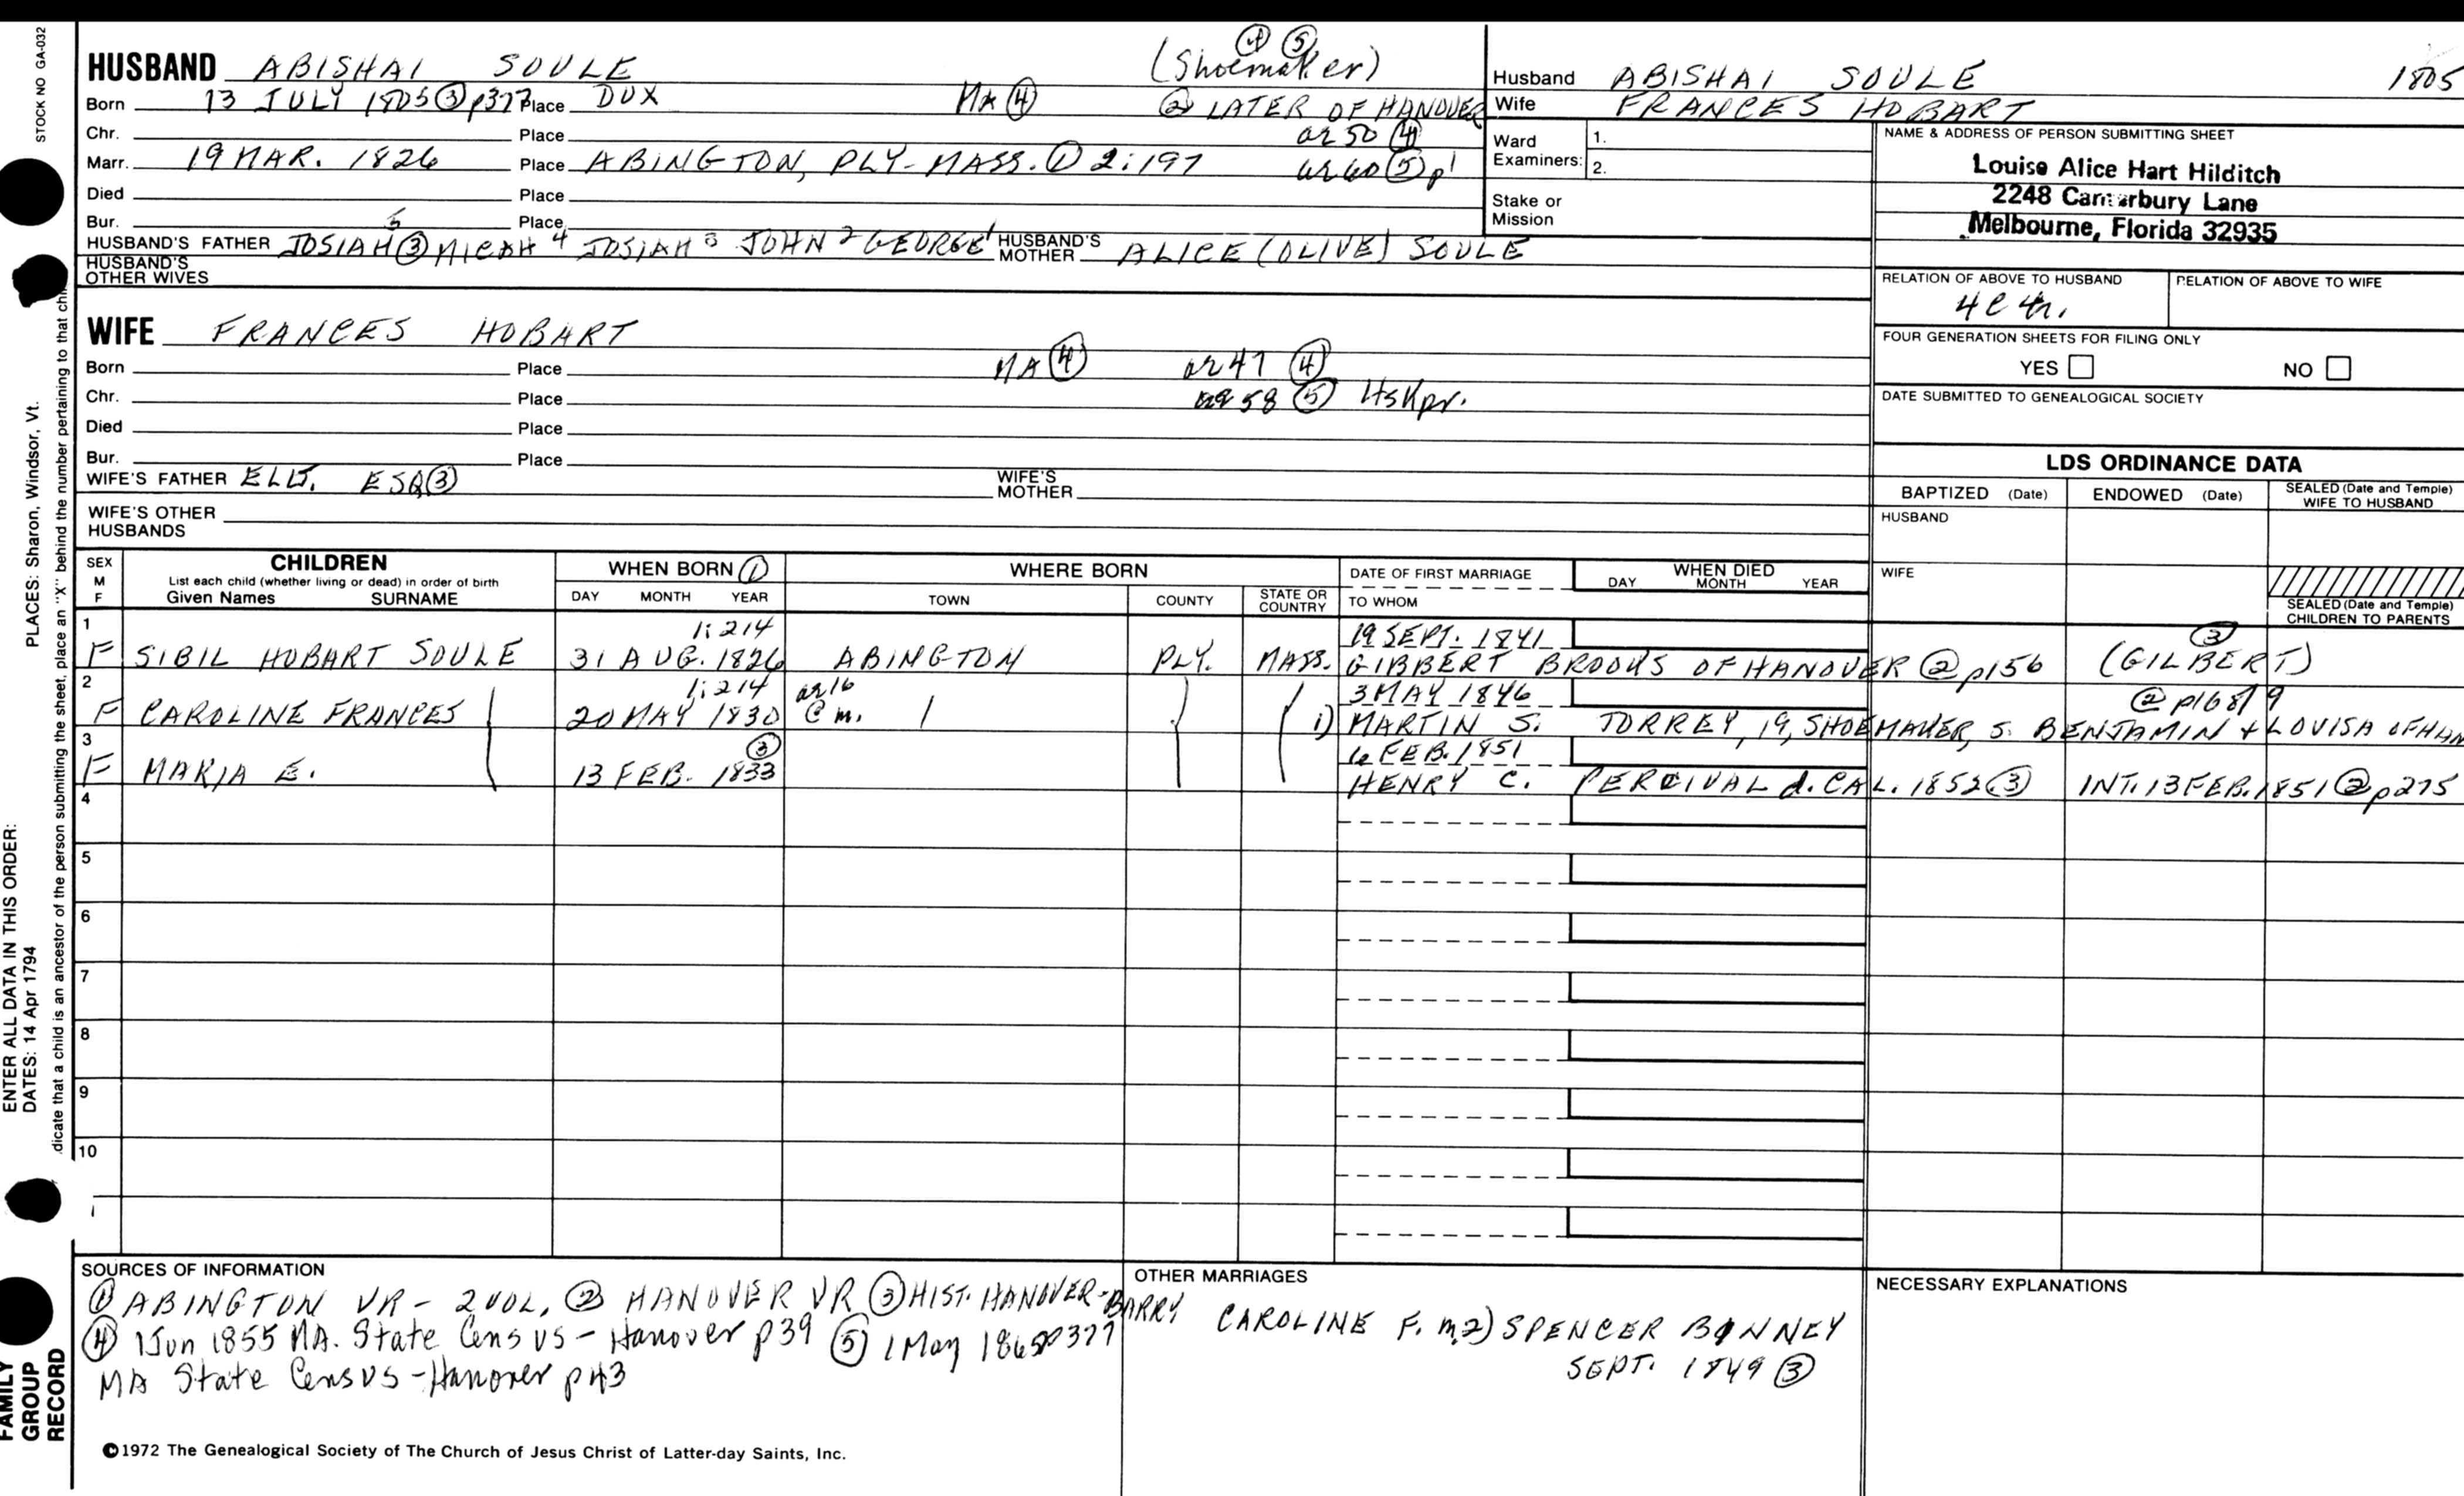 STOCK NO GA-032
HUSBAND ABISHAI SOULE (Shoemaker) ④ ⑤
Born 13 JULY 1805 ③ p377 Place DUX MA ④ ② LATER OF HANOVER
Chr. Place ae 50 ④
Marr. 19 MAR. 1826 Place ABINGTON, PLY-MASS. ① 2:197 ae 60 ⑤ p1
Died Place
Bur. Place
HUSBAND'S FATHER JOSIAH 5 ③ MICAH 4 JOSIAH 3 JOHN 2 GEORGE 1 HUSBAND'S MOTHER ALICE (OLIVE) SOULE
HUSBAND'S OTHER WIVES
WIFE FRANCES HOBART
Born Place MA ④ ae 47 ④
Chr. Place ae 58 ⑤ HsKpr.
Died Place
Bur. Place
WIFE'S FATHER ELIJ. ESQ ③ WIFE'S MOTHER
WIFE'S OTHER HUSBANDS
Husband ABISHAI SOULE 1805
Wife FRANCES HOBART
Ward Examiners: 1.
2.
Stake or Mission
NAME & ADDRESS OF PERSON SUBMITTING SHEET
Louise Alice Hart Hilditch
2248 Canterbury Lane
Melbourne, Florida 32935
RELATION OF ABOVE TO HUSBAND RELATION OF ABOVE TO WIFE
FOUR GENERATION SHEETS FOR FILING ONLY
YES NO
DATE SUBMITTED TO GENEALOGICAL SOCIETY
LDS ORDINANCE DATA
BAPTIZED (Date) ENDOWED (Date) SEALED (Date and Temple) WIFE TO HUSBAND
HUSBAND
WIFE
SEALED (Date and Temple) CHILDREN TO PARENTS
SEX M F
CHILDREN
List each child (whether living or dead) in order of birth
Given Names SURNAME
WHEN BORN ①
DAY MONTH YEAR
WHERE BORN
TOWN COUNTY STATE OR COUNTRY
DATE OF FIRST MARRIAGE
TO WHOM
WHEN DIED
DAY MONTH YEAR
1 1:214 19 SEPT. 1841 ③
F SIBIL HOBART SOULE 31 AUG. 1826 ABINGTON PLY. MASS. GIBBERT BROOKS OF HANOVER ② p156 (GILBERT)
2 1:214 ae 16 3 MAY 1846 ② p168/9
F CAROLINE FRANCES 20 MAY 1830 @ m. 1) MARTIN S. TORREY, 19, SHOEMAKER, S. BENJAMIN + LOUISA OF HAN
3 ③ 16 FEB. 1851
F MARIA E. 13 FEB. 1833 HENRY C. PERCIVAL d. CAL. 1852 ③ INT. 13 FEB. 1851 ② p275
4
5
6
7
8
9
10
SOURCES OF INFORMATION
① ABINGTON VR - 2 VOL. ② HANOVER VR ③ HIST. HANOVER - BARRY p377
④ 1 Jun 1855 MA. State Census - Hanover p39 ⑤ 1 May 1865
MA State Census - Hanover p43
OTHER MARRIAGES
CAROLINE F. m. 2) SPENCER BONNEY
SEPT. 1849 ③
NECESSARY EXPLANATIONS
©1972 The Genealogical Society of The Church of Jesus Christ of Latter-day Saints, Inc.
dicate that a child is an ancestor of the person submitting the sheet, place an "X" behind the number pertaining to that chi
ENTER ALL DATA IN THIS ORDER:
DATES: 14 Apr 1794
PLACES: Sharon, Windsor, Vt.
FAMILY GROUP RECORD